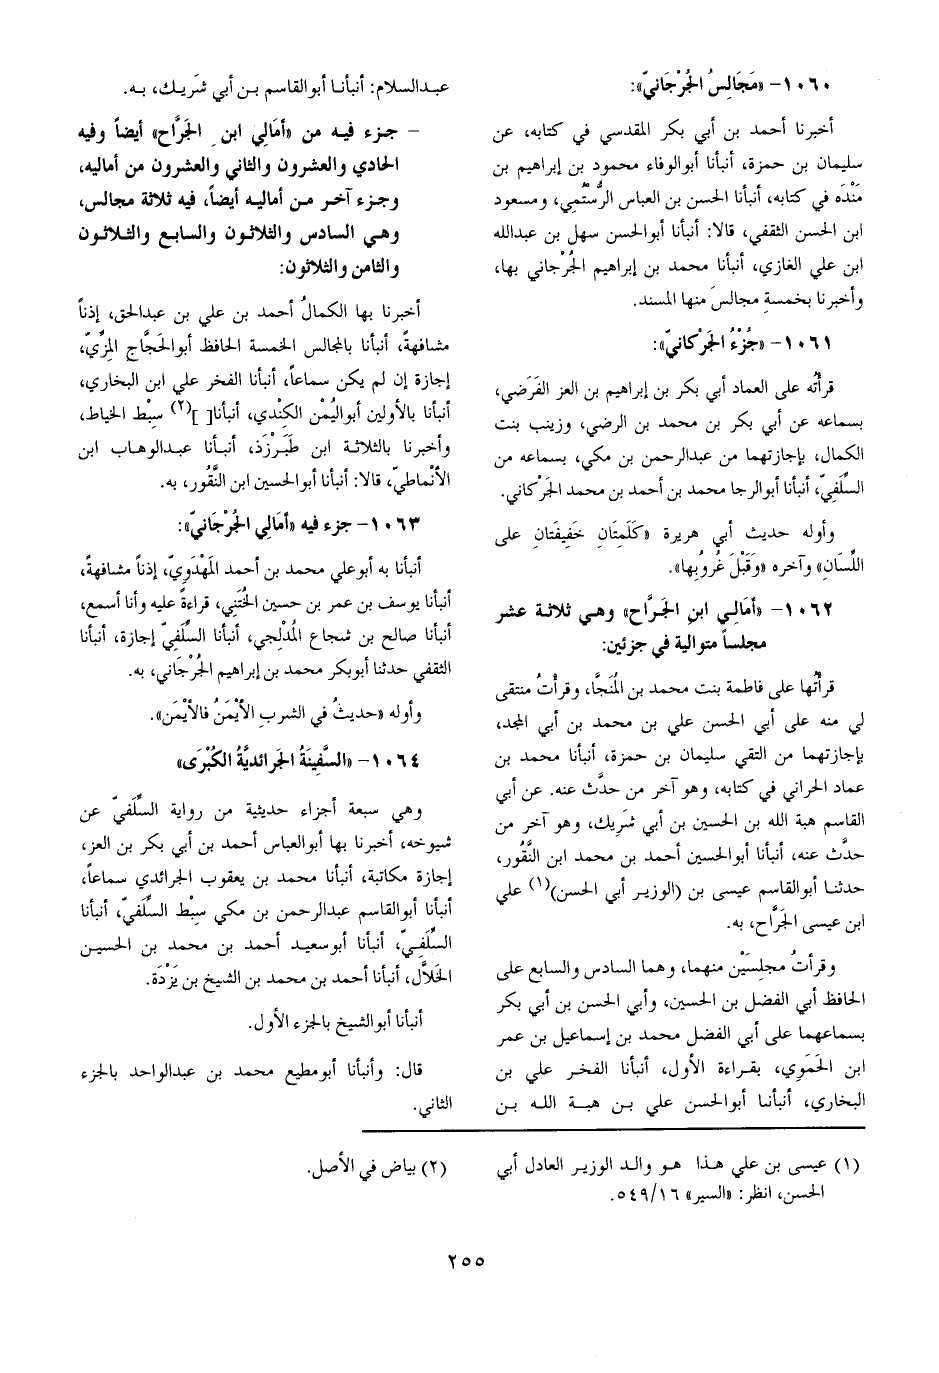 ١٠٦٠- «مَجَالِسُ الجُرْجَانيّ»:
أخبرنا أحمد بن أبي بكر المقدسي في كتابه، عن
سليمان بن حمزة، أنبأنا أبوالوفاء محمود بن إبراهيم بن
مَنْدَه في كتابه، أنبأنا الحسن بن العباس الرُّستُمِي، ومسعود
ابن الحسن الثقفي، قالا: أنبأنا أبوالحسن سهل بن عبدالله
ابن علي الغازي، أنبأنا محمد بن إبراهيم الجُرْجاني بها،
وأخبرنا بخمسةِ مجالسَ منها المسند.
١٠٦١- «جُزْءُ الجَرْكانيّ»:
قرأتُه على العماد أبي بكر بن إبراهيم بن العز الفَرَضي،
بسماعه عن أبي بكر بن محمد بن الرضي، وزينب بنت
الكمال، بإجازتهما من عبدالرحمن بن مكي، بسماعه من
السِّلَفيّ، أنبأنا أبوالرجا محمد بن أحمد بن محمد الجَرْكاني.
وأوله حديث أبي هريرة «كَلَمِتَانِ خَفِيفَتانِ على
اللِّسَانِ» وآخره «وَقَبْلَ غُرُوبِها».
١٠٦٢- «أمَالي ابنِ الجَرَّاح» وهي ثلاثة عشر
مجلساً متوالية في جزئين:
قرأتُها على فاطمة بنت محمد بن المُنَجَّا، وقرأتُ منتقى
لي منه على أبي الحسن علي بن محمد بن أبي المجد،
بإجازتهما من التقي سليمان بن حمزة، أنبأنا محمد بن
عماد الحراني في كتابه، وهو آخر من حدَّث عنه. عن أبي
القاسم هبة الله بن الحسين بن أبي شَريك، وهو آخر من
حدَّث عنه، أنبأنا أبوالحسين أحمد بن محمد ابن النَّقُور،
حدثنا أبوالقاسم عيسى بن (الوزير أبي الحسن)(١) علي
ابن عيسى الجَرَّاح، به.
وقرأتُ مجلسَيْن منهما، وهما السادس والسابع على
الحافظ أبي الفضل بن الحسين، وأبي الحسن بن أبي بكر
بسماعهما على أبي الفضل محمد بن إسماعيل بن عمر
ابن الحَمَوي، بقراءة الأول، أنبأنا الفخر علي بن
البخاري، أنبأنا أبوالحسن علي بن هبة الله بن
عبدالسلام: أنبأنا أبوالقاسم بن أبي شَريك، به.
– جزء فيه من «أمَالي ابن الجَرَّاح» أيضاً وفيه
الحادي والعشرون والثاني والعشرون من أماليه،
وجزء آخر من أماليه أيضاً، فيه ثلاثة مجالس،
وهي السادس والثلاثون والسابع والثلاثون
والثامن والثلاثون:
أخبرنا بها الكمالُ أحمد بن علي بن عبدالحق، إذناً
مشافهةً، أنبأنا بالمجالس الخمسة الحافظ أبوالحَجَّاج المِزِّي،
إجازة إن لم يكن سماعاً، أنبأنا الفخر علي ابن البخاري،
أنبأنا بالأولين أبواليُمْن الكِنْدي، أنبأنا[ ](٢) سِبْط الخياط،
وأخبرنا بالثلاثة ابن طَبَرْزَد، أنبأنا عبدالوهاب ابن
الأنْماطيّ، قالا: أنبأنا أبوالحسين ابن النَّقُور، به.
١٠٦٣- جزء فيه «أمَالي الجُرْجَانيّ»:
أنبأنا به أبوعلي محمد بن أحمد المَهْدَويّ، إذناً مشافهةً،
أنبأنا يوسف بن عمر بن حسين الخُتَني، قراءةً عليه وأنا أسمع،
أنبأنا صالح بن شجاع المُدْلجي، أنبأنا السِّلَفيّ إجازة، أنبأنا
الثقفي حدثنا أبوبكر محمد بن إبراهيم الجُرْجَاني، به.
وأوله «حديثُ في الشربِ الأيْمَنُ فالأيْمَن».
١٠٦٤- «السَّفِينَةُ الجَرائديَّةُ الكُبْرَى»
وهي سبعة أجزاء حديثية من رواية السِّلَفيّ عن
شيوخه، أخبرنا بها أبوالعباس أحمد بن أبي بكر بن العز،
إجازة مكاتبة، أنبأنا محمد بن يعقوب الجرائدي سماعاً،
أنبأنا أبوالقاسم عبدالرحمن بن مكي سِبْط السِّلَفيّ، أنبأنا
السِّلَفيّ، أنبأنا أبوسعيد أحمد بن محمد بن الحسين
الخَلاَّل، أنبأنا أحمد بن محمد بن الشيخ بن يَزْدَة.
أنبأنا أبوالشيخ بالجزء الأول.
قال: وأنبأنا أبومطيع محمد بن عبدالواحد بالجزء
الثاني.
(١) عيسى بن علي هذا هو والد الوزير العادل أبي
الحسن، انظر: «السير» ٥٤٩/١٦.
(٢) بياض في الأصل.
٢٥٥